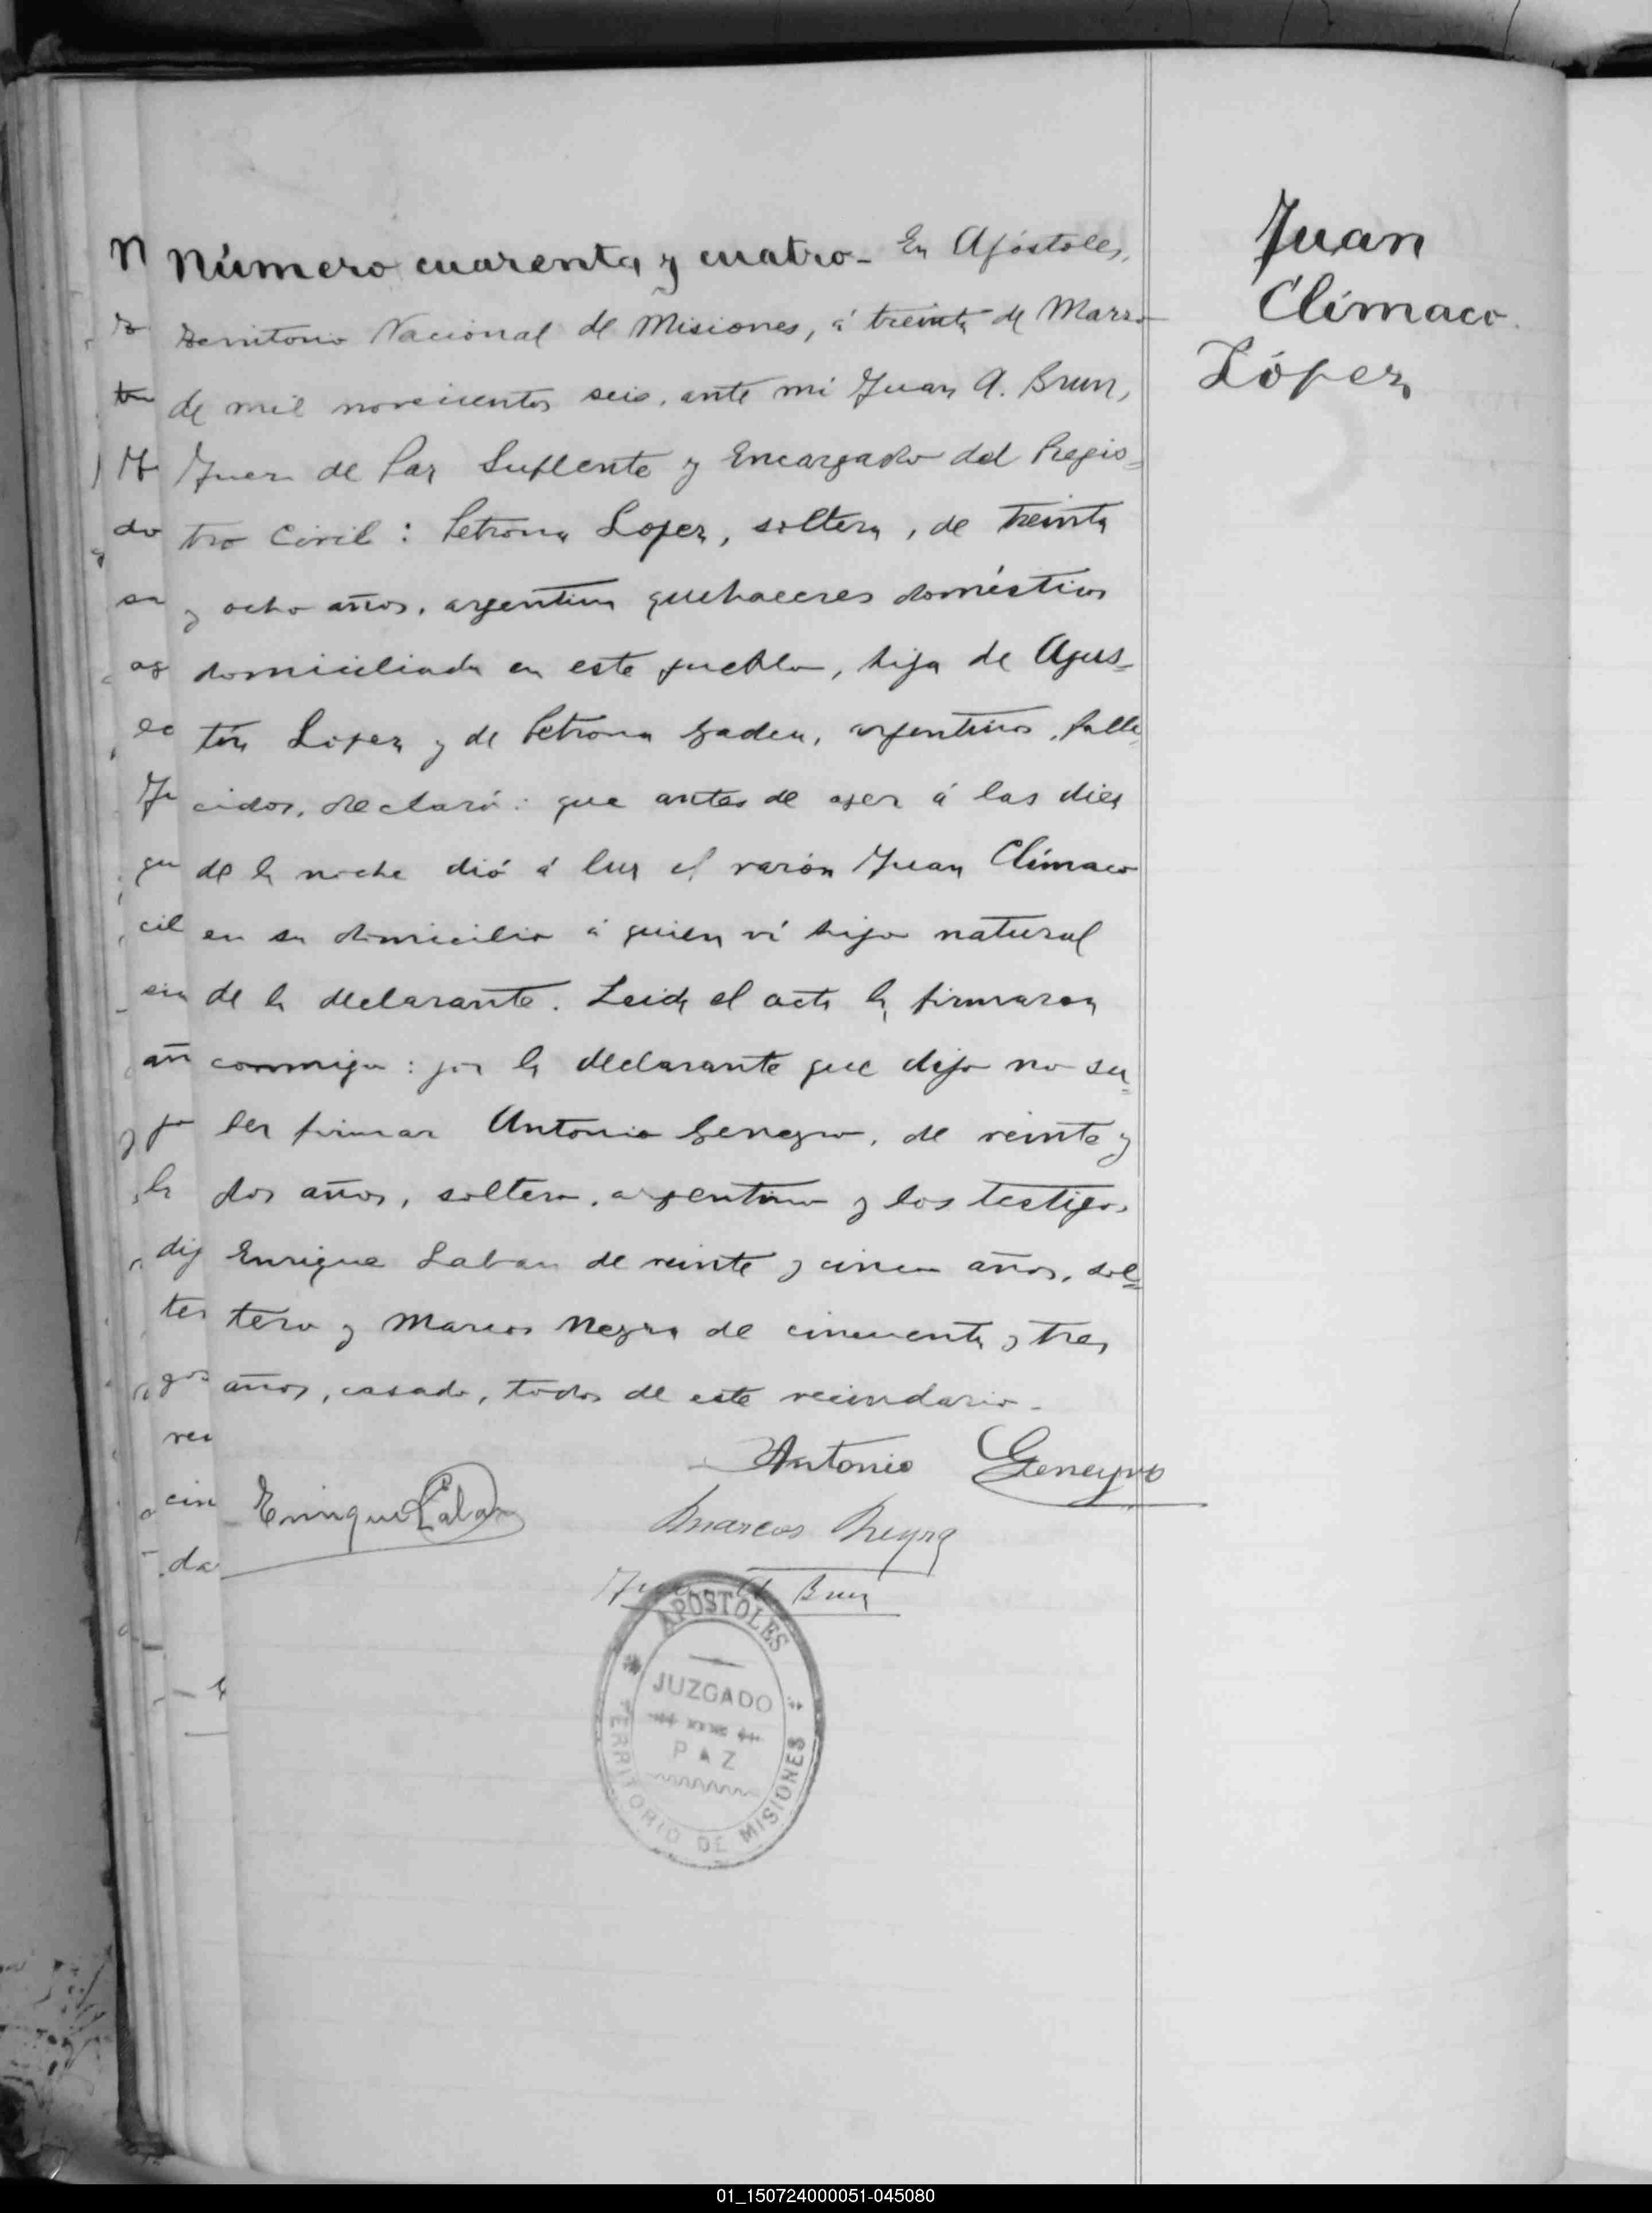 Número cuarenta y cuatro - En Apóstoles,
Territorio Nacional de Misiones, á treinta de Marzo
de mil novecientos seis, ante mi Juan A. Brun,
Juez de Paz Suplente y Encargado del Regis=
tro Civil: Petrona Lopez, soltera, de treinta
y ocho años, argentina quehaceres domésticos
domiciliada en este pueblo, hija de Agus=
tin Lopez y de Petrona argentinos, falle=
cidos, declaró: que antes de ayer á las diez
de la noche dió á luz el varón Juan Clímaco
en su domicilio á quien ví hijo natural
de la declarante. Leida el acta la firmaron
conmigo: por la declarante que dijo no sa=
ber firmar Antonio Geneyro, de veinte y
dos años, soltero, argentino y los testigos
Enrique Laban de veinte y cinco años, sol=
tero y Marcos Neyra de cincuenta y tres
años, casado, todos de este vecindario.
Antonio Geneyro
Enrique Laban
Marcos Neyra
Juan A. Brun
APOSTOLES
JUZGADO
PAZ
TERRITORIO DE MISIONES
Juan
Clímaco
López
01_150724000051-045080